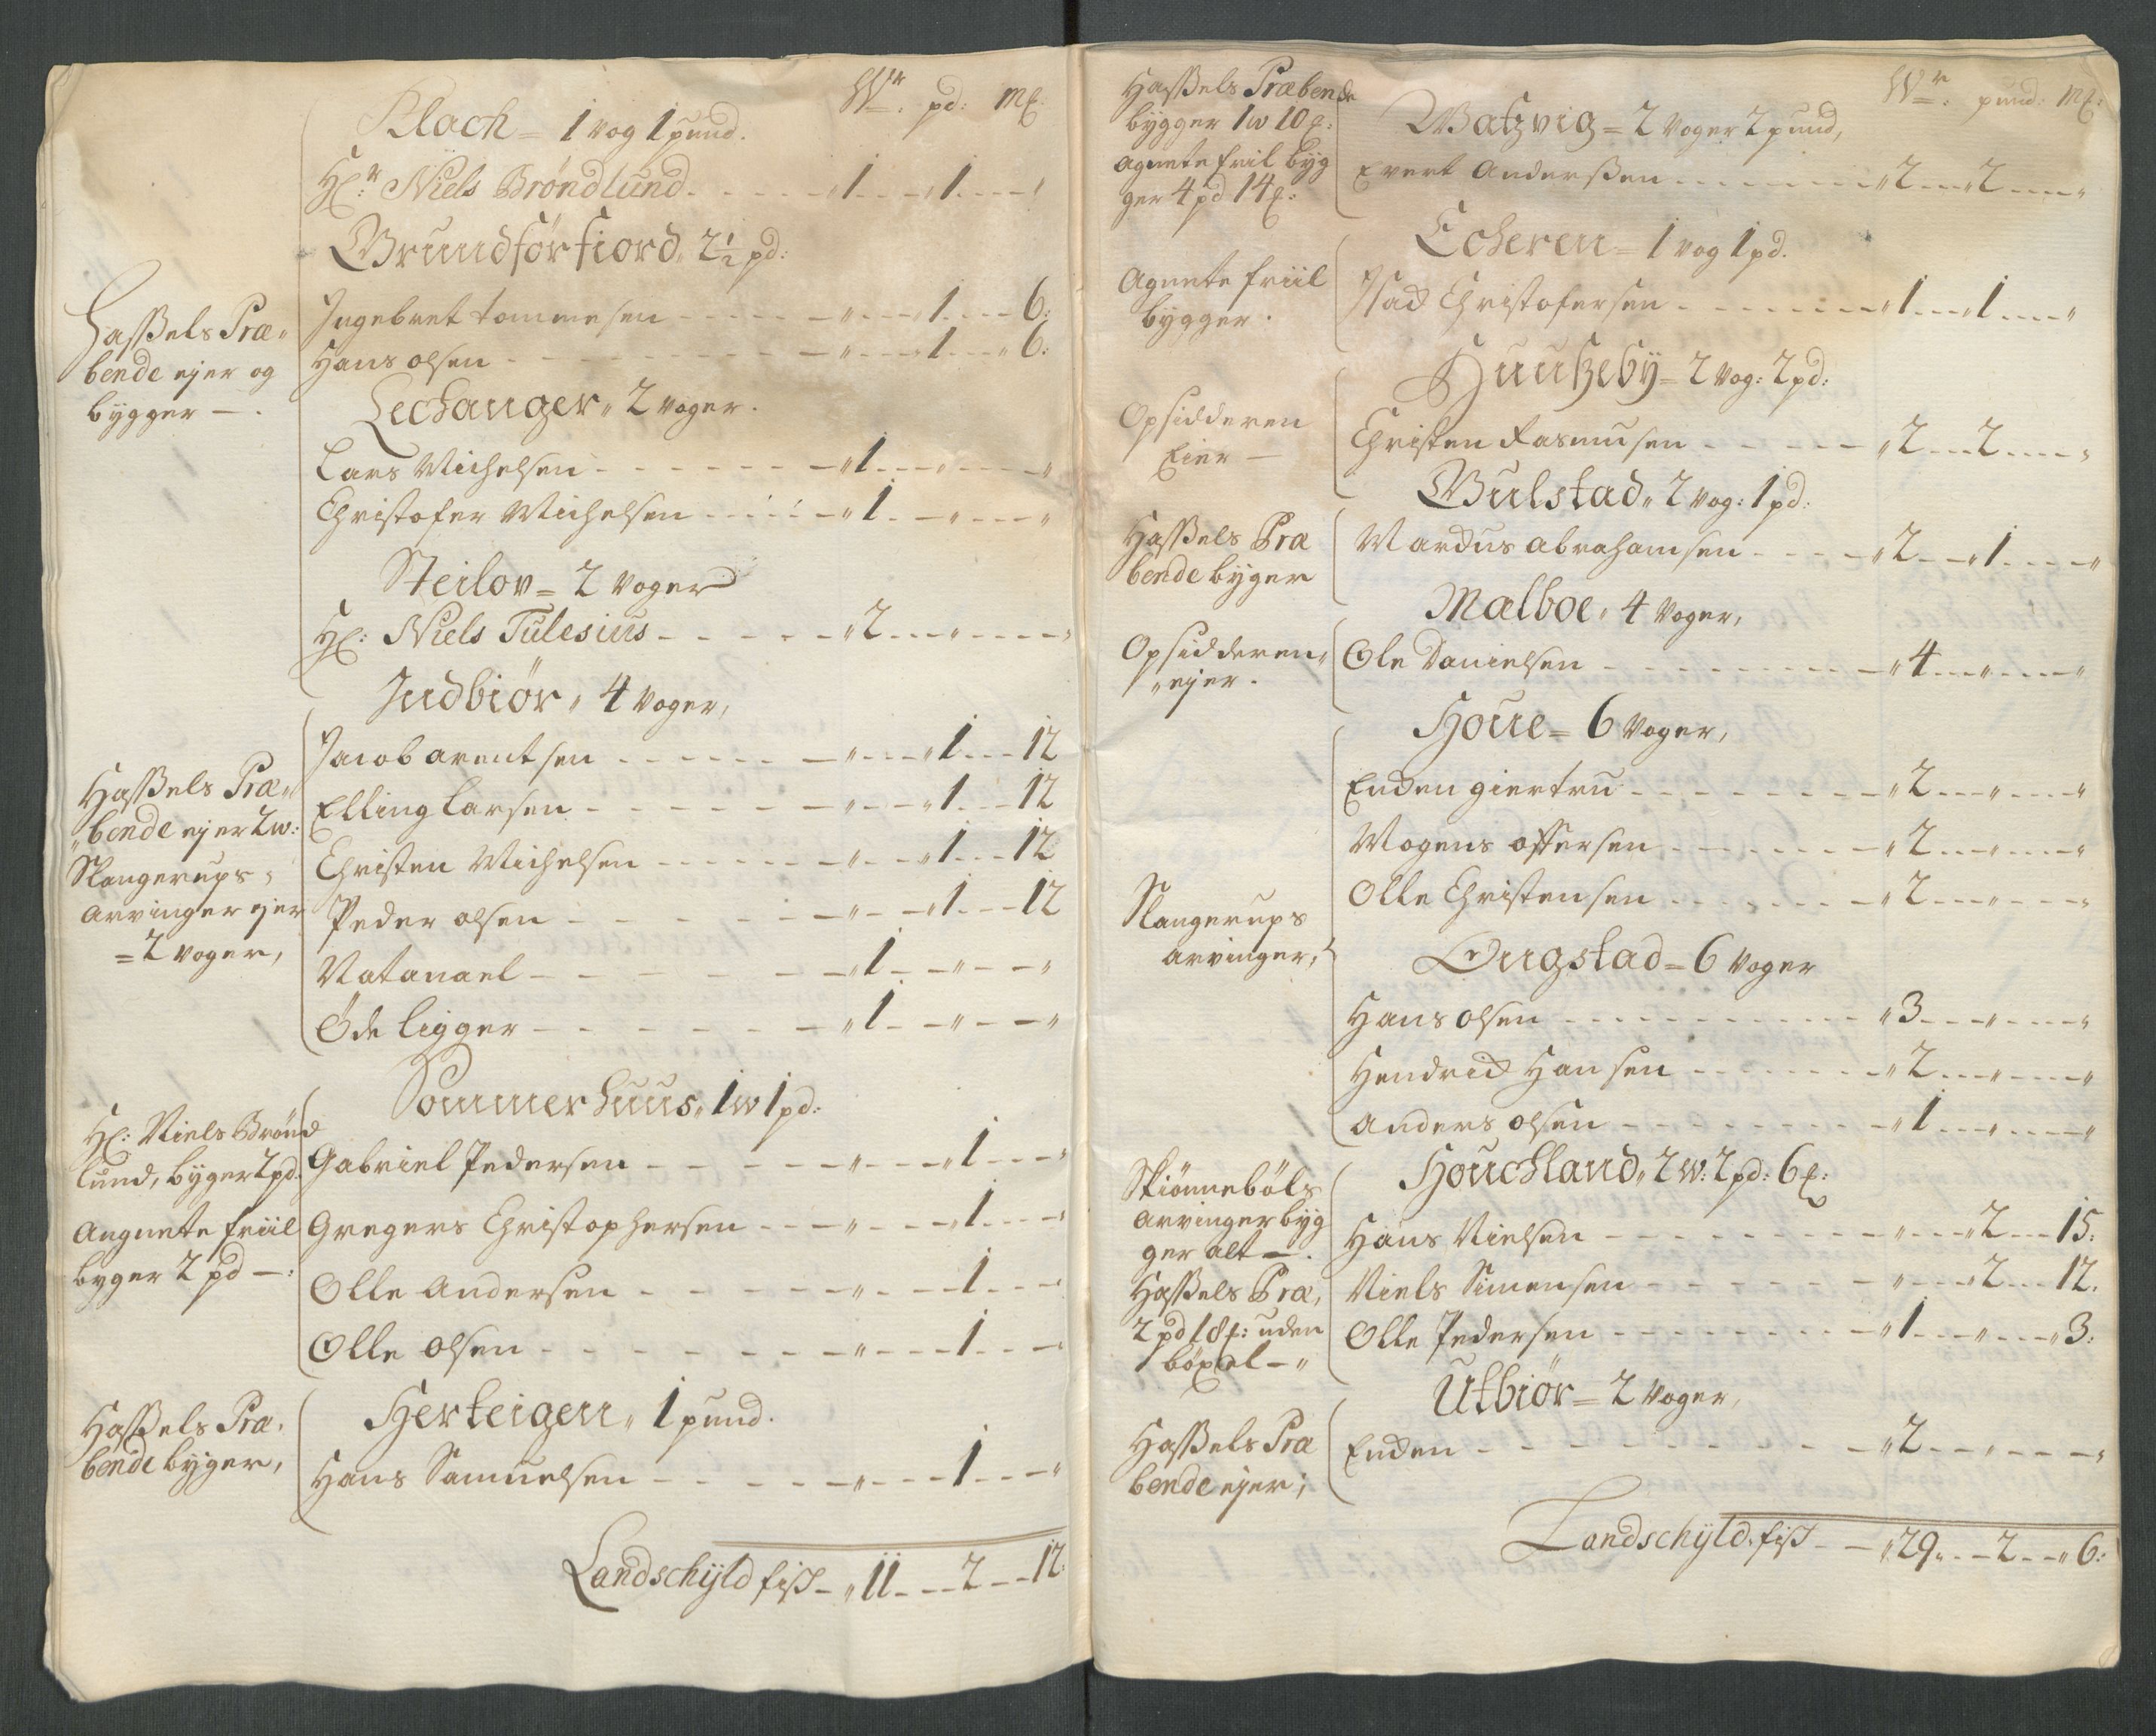 Wr. pd: m[:
Klach = 1 vog 1 pund.
H[r: Niels Bröndlund - - - - - „ 1 - - - „ 1 - - - „
Brundförfiord. 2½ pd:
Haßels Præ„
bende ejer og
bÿgger — .
Ingebret tommesen - - - - - „ - - - „ 1 - - - 6:
Hans olsen - - - - - - - „ - - - „ 1 - - - „ 6:
Lechanger„ 2 voger.
Lars Michelsen - - - - - - „ 1 - - - „ - - - „
Christofer Michelsen - - - - - „ 1 - - - „ - - - „
Steilov = 2 voger
H[: Niels Tulesius - - - - - „ 2 - - - „ - - - - „
Indbiör„ 4 voger,
Haßels Præ„
„bende ejer 2 w:
Slangerups„
arvinger ejer
= 2 voger,
Jacob arentsen - - - - - „ - - - „ 1 - - - 12
Elling Larsen - - - - - „ - - - „ 1 - - - 12
Christen Michelsen - - - - - „ - - - „ 1 - - - 12
Peder olsen - - - - - „ - - - „ 1 - - - 12
Natanael - - - - - - - „ 1 - - - „ - - - „
Öde ligger - - - - - - - „ 1 - - - „ - - - „
Sommerhuus„ 1 w 1 pd:
H[: Niels Brönd
lund, bÿger 2 pd:
Augnete friil
byger 2 pd — :
Gabriel Pedersen - - - - - „ - - - „ 1 - - - „
Gregers Christophersen - - - „ - - - „ 1 - - - „
Olle Andersen - - - - - „ - - - 1 - - - „
Olle olsen - - - - - - - „ - - - 1 - - - „
Herteigen„ 1 pund.
Haßels Præ„
bende byger,
Hans Samuelsen - - - - - „ - - - 1 - - - „
Landschÿld fisk - „ 11 - - - 2 - - - 12:
Wr: pund: m[:
Haßels Præbende
bÿgger 1 w 10 [:
agnete friil bÿg
ger 4 pd 14 [:
Watzvig = 2 voger 2 pund,
Evert Anderßen - - - - - - - „ 2 - - - „ 2 - - - „
Echeren = 1 vog 1 pd.
Agnete friil
bÿgger .
Isach Christofersen - - - - - - „ 1 - - - „ 1 - - - „
Huutzeby = 2 vog: 2 pd:
Opsidderen
Eier —
Christen Rasmusen - - - - - „ 2 - - - 2 - - - „
Bulstad„ 2 vog: 1 pd:
Haßels Præ
bende bÿger
Mardus abrahamsen - - - - „ 2 - - - „ 1 - - - „
Mælboe„ 4 voger,
Opsidderen„
„ejer .
Ole Danielsen - - - - - - - „ 4 - - - „ - - - „
Houe = 6 voger,
Slangerups
arvinger,
Enchen giertru - - - - - - - „ 2 - - - „ - - - „
Mogens offersen - - - - - - „ 2 - - - „ - - - „
Olle Christensen - - - - - - „ 2 - - - „ - - - „
Ougstad = 6 voger
Hans olsen - - - - - - - - „ 3 - - - „ - - - „
Hendrich Hansen - - - - - - „ 2 - - - „ - - - „
anders olsen - - - - - - - „ 1 - - - „ - - - „
Houchland„ 2 w: 2 pd: 6 [:
Skiönneböls
arvinger bÿg
ger alt — .
Haßels Præ,
2 pd 18 [: uden
böxel — „
Hans Nielsen - - - - - - - „ - - - „ 2 - - - 15:
Niels Simensen - - - - - - „ - - - „ 2 - - - 12.
Olle Pedersen - - - - - - - „ 1 - - - „ - - - „ 3:
Utbiör = 2 voger,
Haßels Præ
bende ejer;
Enchen - - - - - - - - - „ 2 - - - „ - - - „
Landschÿld. fisk - - „ 29„ - - - 2 - - - „ 6: